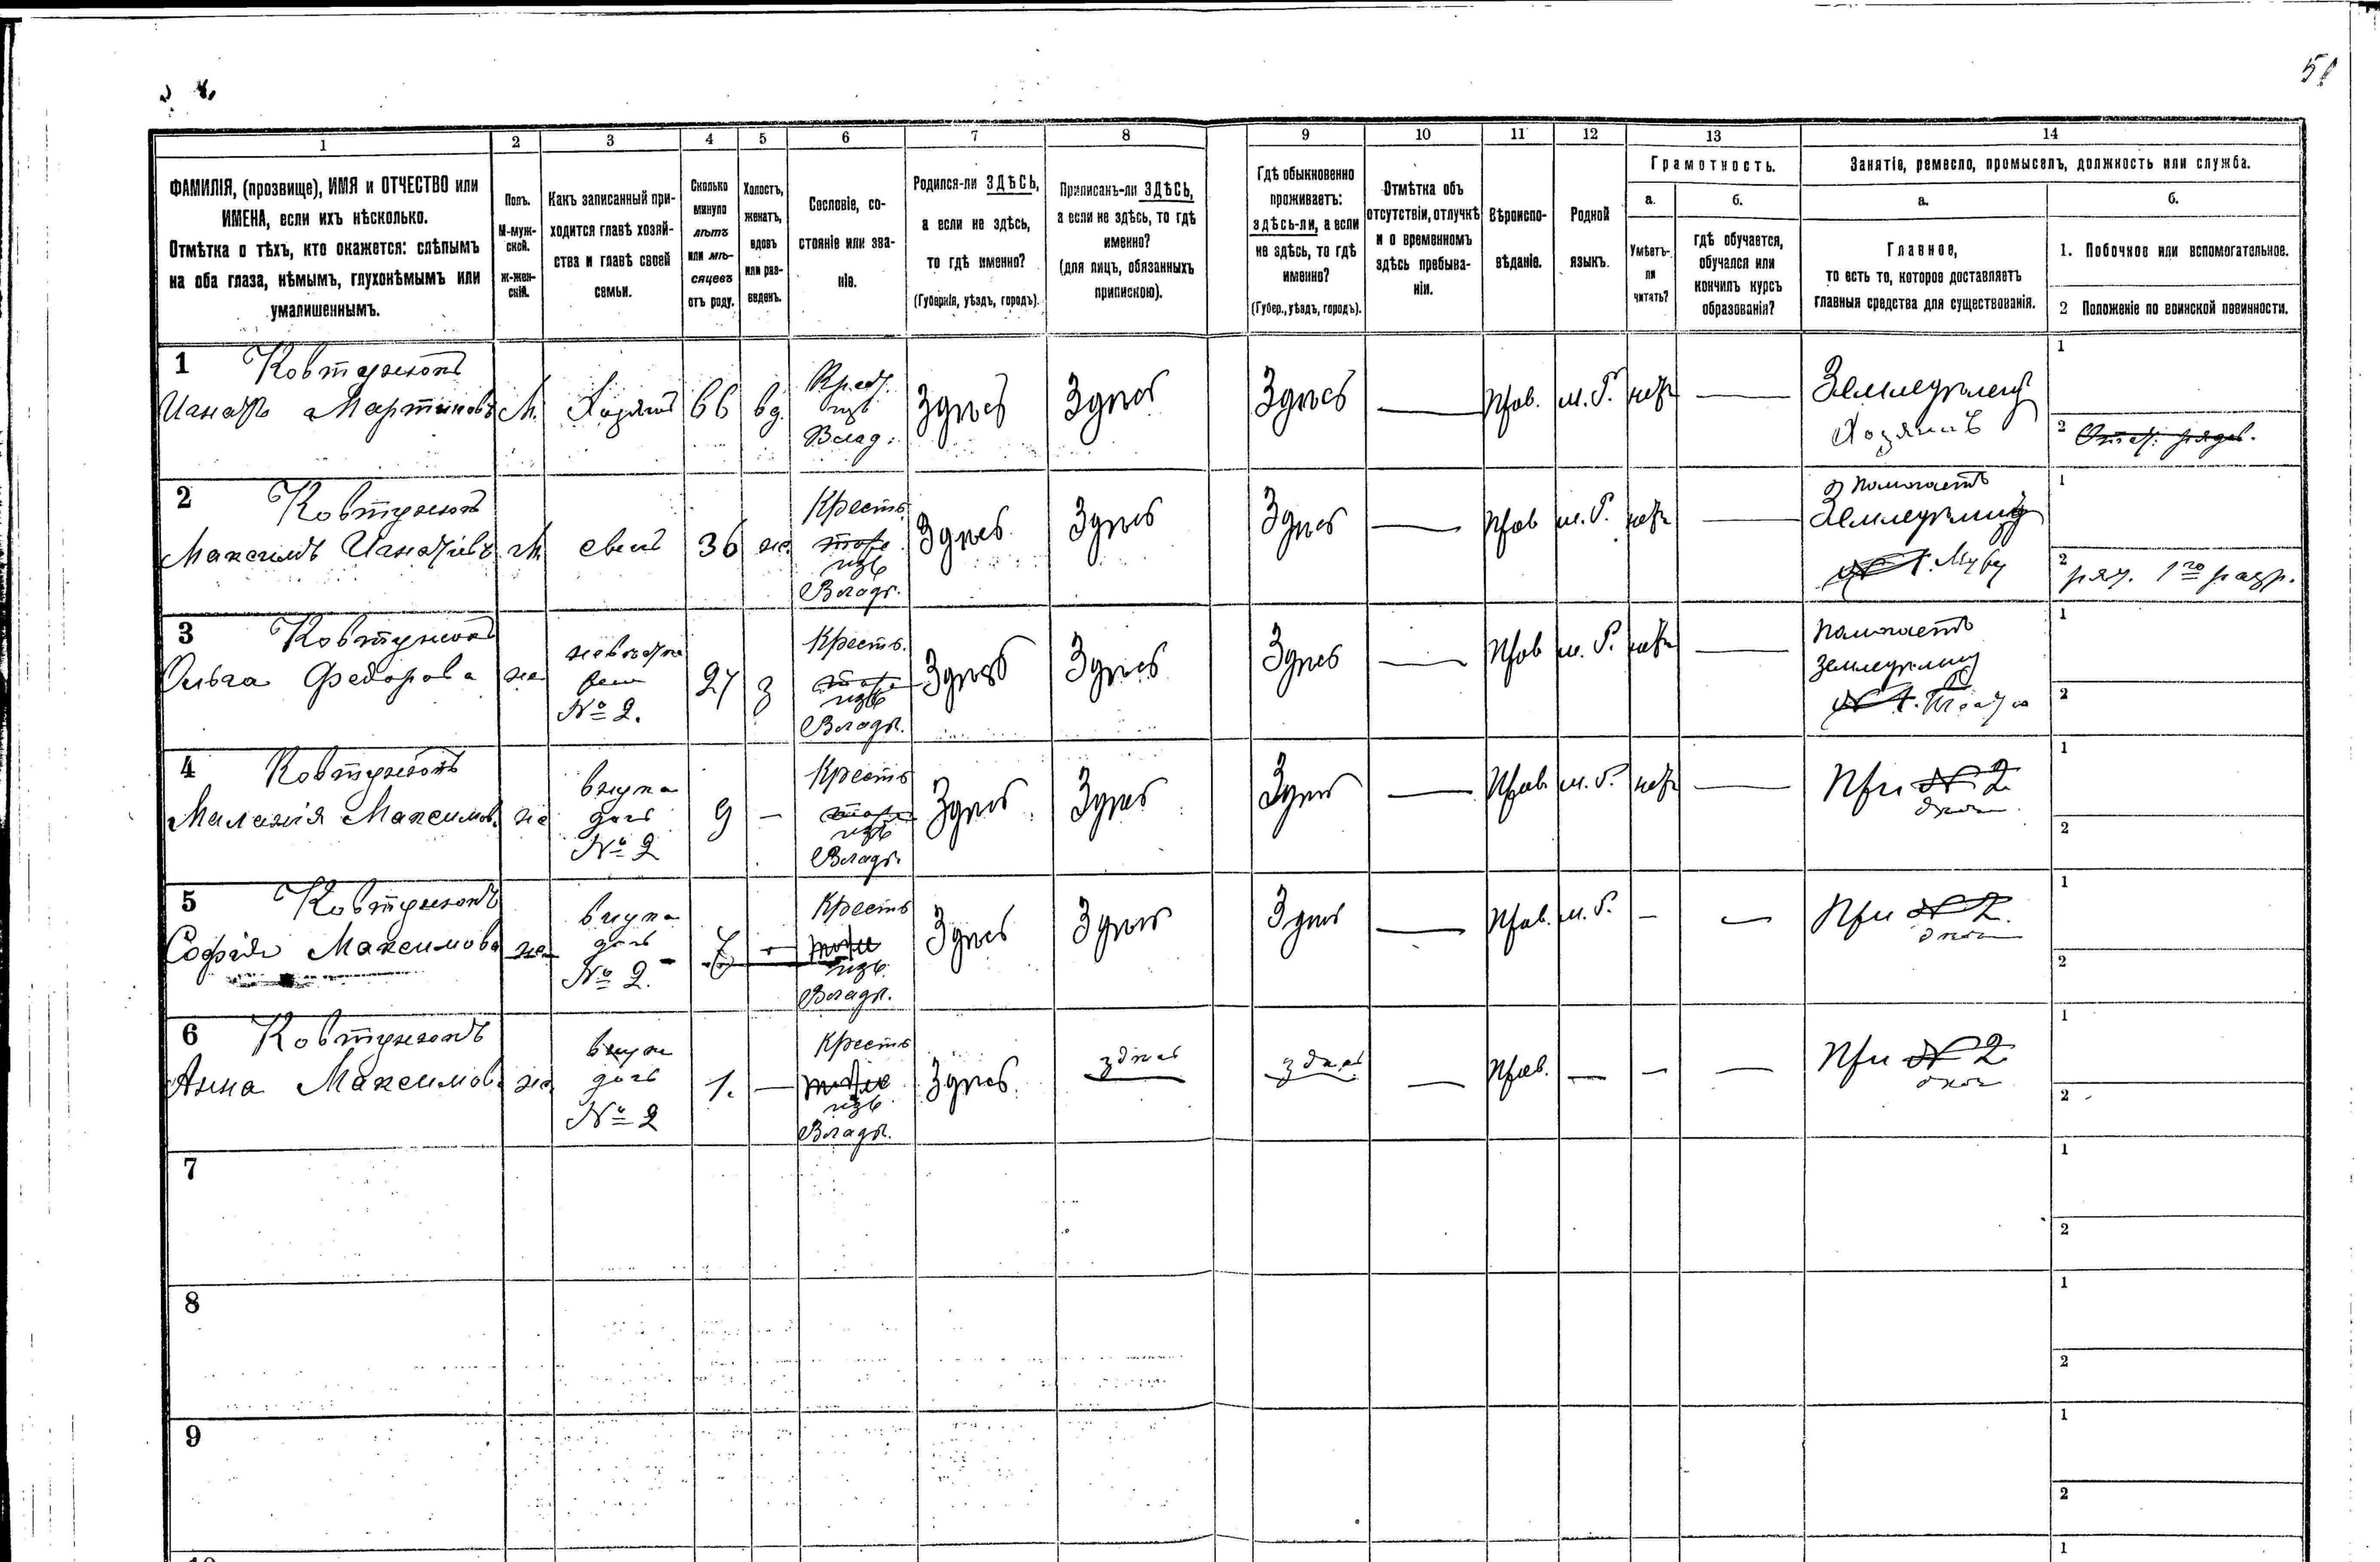 51
1
2
3
4
5
6
7
8
9
10
11
12
13
14
ФАМИЛІЯ, (прозвище), ИМЯ и ОТЧЕСТВО или
ИМЕНА, если ихъ нѣсколько.
Отмѣтка о тѣхъ, кто окажется: слѣпымъ
на оба глаза, нѣмымъ, глухонѣмымъ или
умалишеннымъ.
Полъ.
М-муж-
ской.
Ж-жен-
скій.
Какъ записанный при-
ходится главѣ хозяй-
ства и главѣ своей
семьи.
Сколько
минуло
лѣтъ
или мѣ-
сяцевъ
отъ роду.
Холостъ,
женатъ,
вдовъ
или раз-
веденъ.
Сословіе, со-
стояніе или зва-
ніе.
Родился-ли ЗДѢСЬ,
а если не здѣсь,
то гдѣ именно?
(Губернія, уѣздъ, городъ).
Приписанъ-ли ЗДѢСЬ,
а если не здѣсь, то гдѣ
именно?
(для лицъ, обязанныхъ
припискою).
Гдѣ обыкновенно
проживаетъ:
здѣсь-ли, а если
не здѣсь, то гдѣ
именно?
(Губер., уѣздъ, городъ).
Отмѣтка объ
отсутствіи, отлучкѣ
и о временномъ
здѣсь пребыва-
ніи.
Вѣроиспо-
вѣданіе.
Родной
языкъ.
Грамотность.
а.
Умѣетъ-
ли
читать?
б.
гдѣ обучается,
обучался или
кончилъ курсъ
образованія?
Занятіе, ремесло, промыселъ, должность или служба.
а.
Главное,
то есть то, которое доставляетъ
главныя средства для существованія.
б.
1. Побочное или вспомогательное.
2 Положеніе по воинской повинности.
1 Ковтунъ
Мартиновъ М. Хозяинъ 66 вд. Крест. изъ Влад. Здѣсь Здѣсь Здѣсь — Прав. м. Р. нѣтъ — Земледѣлец Хозяинъ
1
2
2 Ковтунъ
Максимъ М сынъ 36 ж. Кресть изъ Владѣ. Здѣсь Здѣсь Здѣсь — Прав м. Р. нѣтъ — Помогаетъ
1
2 ряд. 1го разр.
3 Ковтунъ
Ольга Федорова ж невѣстка №2. 27 з Кресть. изъ Владѣ. Здѣсь Здѣсь Здѣсь — Прав м. Р. нѣтъ — Помогаетъ
1
2
4 Ковтунъ
Маланія Максимов. ж внука дочь №2 9 — Кресть изъ Владѣ. Здѣсь Здѣсь Здѣсь — Прав. м. Р. нѣтъ — При №2
1
2
5 Ковтунъ
Софія Максимова ж внука дочь №2. 7 — Кресть изъ Владѣ. Здѣсь Здѣсь Здѣсь — Прав. м. Р. — — При №2.
1
2
6 Ковтунъ
Анна Максимов. ж. внука дочь №2 1. — Кресть изъ Владѣ. Здѣсь. здѣсь здѣсь — Прав. — — — При №2
1
2
7
1
2
8
1
2
9
1
2
1